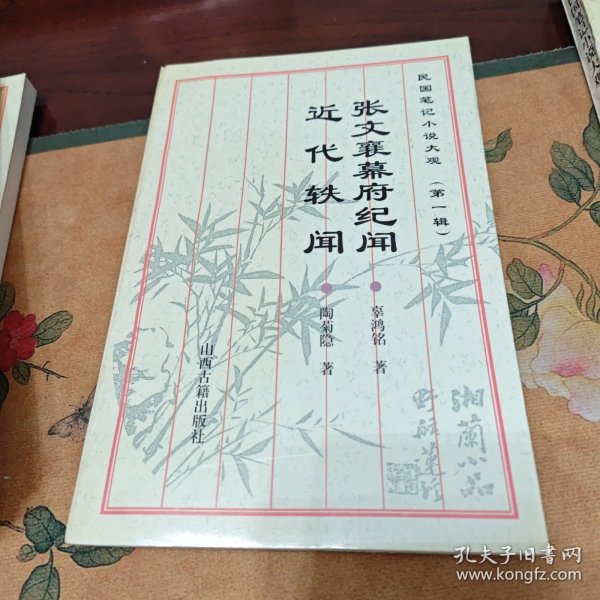 民国笔记小说大观(第一辑)
张文襄幕府纪闻
辜鸿铭 著
近代轶闻
陶菊隐 著
山西古籍出版社
湘兰小品
孔夫子旧书网
www.kongfz.com